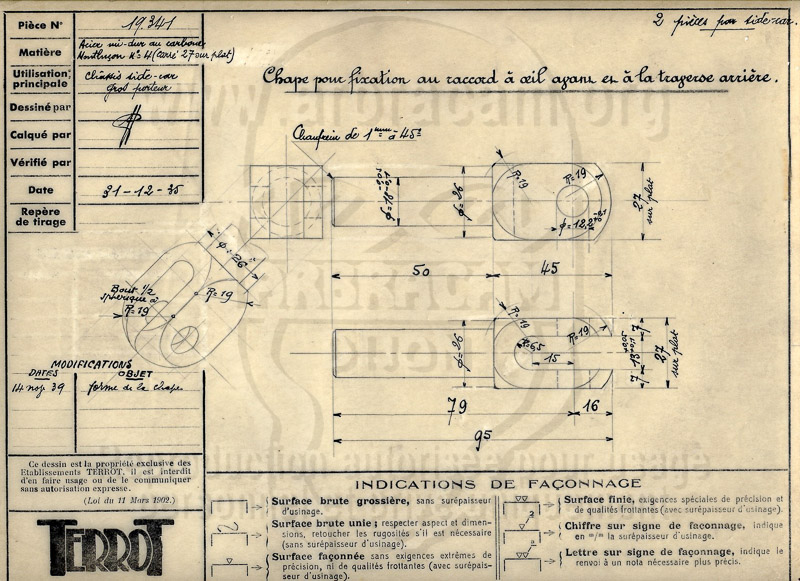 2 pièces pour side-car.
Pièce N° 19341
Matière Acier mi-dur au carbone
Montluçon N° 4 (Carré 27 sur plat)
Utilisation principale Châssis side-car
gros porteur
Dessiné par
Calqué par
Vérifié par
Date 31-12-35
Repère de tirage
Chape pour fixation au raccord à œil avant et à la traverse arrière.
Chanfrein de 1mm à 45°
R=19
R=19
ϕ=18 -0,05
ϕ=26
ϕ=12,2 +0,1 -0
27
sur plat
50
45
ϕ=26
Bout 1/2
sphérique à
R=19
R=19
R=19
R=19
R=6,5
15
ϕ=26
7
13 +0,05 +0,1
7
27
sur plat
79
16
95
MODIFICATIONS
DATES OBJET
14 nov 39 forme de la chape
Ce dessin est la propriété exclusive des
Etablissements TERROT. il est interdit
d'en faire usage ou de le communiquer
sans autorisation expresse.
(Loi du 11 Mars 1902.)
TERROT
INDICATIONS DE FAÇONNAGE
Surface brute grossière, sans surépaisseur
d'usinage.
Surface brute unie ; respecter aspect et dimen-
sions, retoucher les rugosités s'il est nécessaire
(sans surépaisseur d'usinage).
Surface façonnée sans exigences extrêmes de
précision, ni de qualités frottantes (avec surépais-
seur d'usinage).
Surface finie, exigences spéciales de précision et
de qualités frottantes (avec surépaisseur d'usinage).
Chiffre sur signe de façonnage, indique
en m/m la surépaisseur d'usinage.
Lettre sur signe de façonnage, indique le
renvoi à un nota nécessaire plus précis.